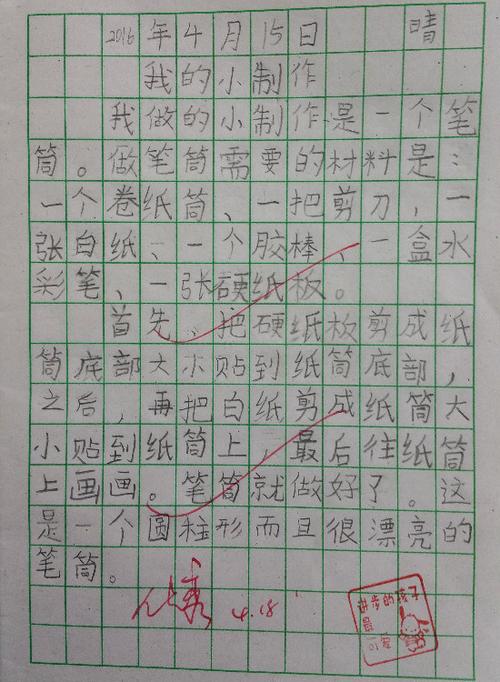 2016年4月15日 晴
我的小制作
我做的小制作是一个笔
筒。做笔筒需要的材料是：
一个卷纸筒、一把剪刀，一
张白纸、一个胶棒、一盒水
彩笔、一张硬纸板。
首先，把硬纸板剪成纸
筒底部大小贴到纸筒底部，
之后，再把白纸剪成纸筒大
小贴到纸筒上，最后往纸筒
上画画。笔筒就做好了。这
是一个圆柱形而且很漂亮的
笔筒。
4.18
进步的孩子
最